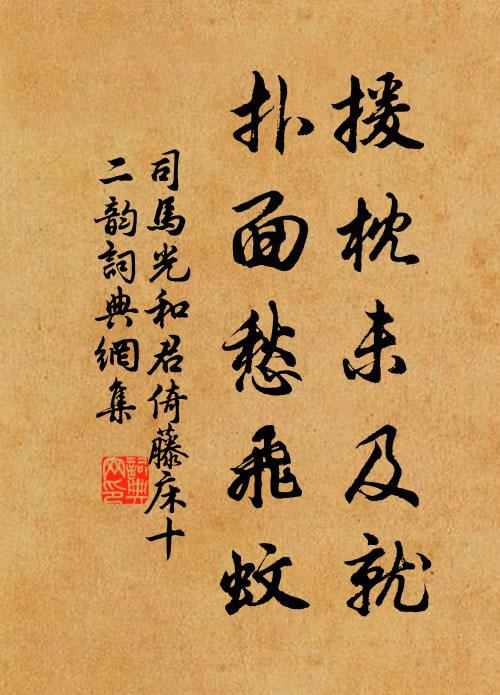 援枕未及就
扑面愁飛蚊
司馬光和君倚藤床十
二韵詞典網集
詞典